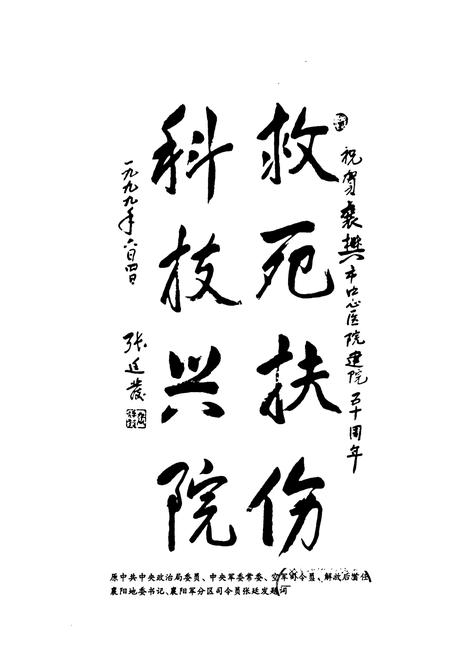 祝贺襄樊市中心医院建院五十周年
救死扶伤
科技兴院
一九九九年六月四日
张廷发
原中共中央政治局委员、中央军委常委、空军司令员、解放后首任
襄阳地委书记、襄阳军分区司令员张廷发题词